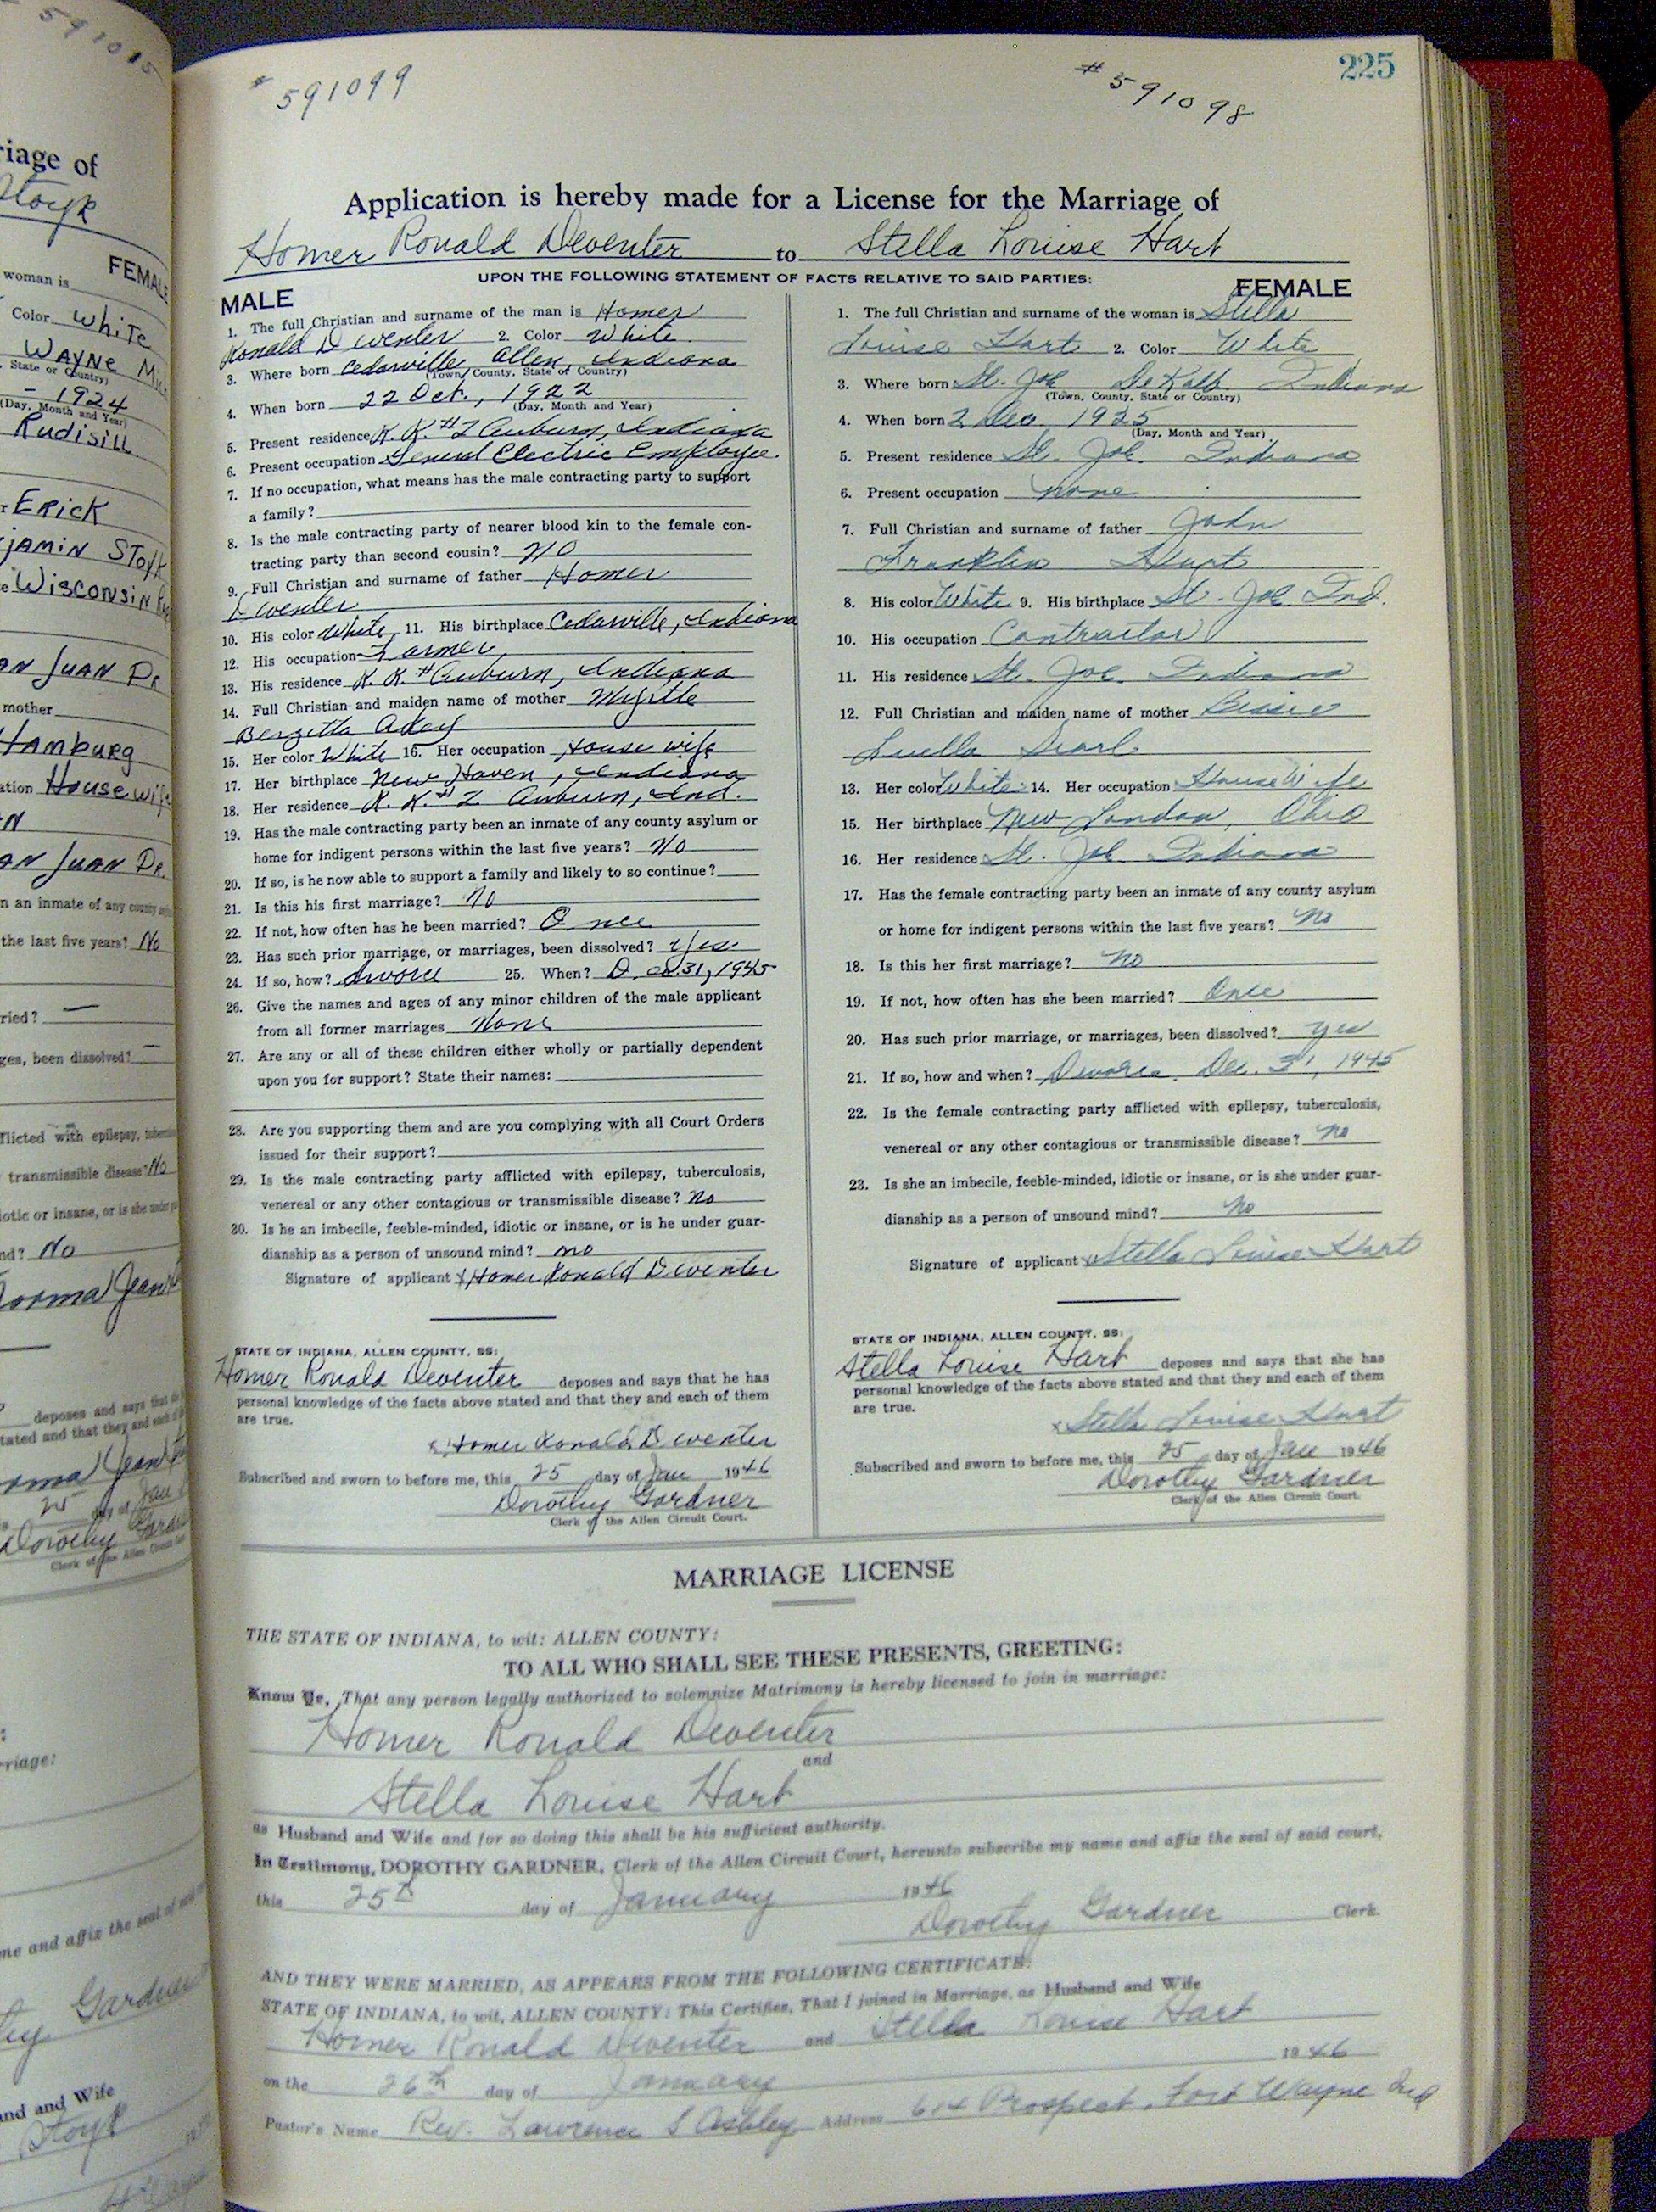 225
# 591099
# 591098
Application is hereby made for a License for the Marriage of
Homer Ronald Deventer to Stella Louise Hart
UPON THE FOLLOWING STATEMENT OF FACTS RELATIVE TO SAID PARTIES:
MALE
1. The full Christian and surname of the man is Homer
Ronald Deventer 2. Color White
3. Where born Cedarville, Allen, Indiana
(Town, County, State or Country)
4. When born 22 Oct., 1922
(Day, Month and Year)
5. Present residence R. R. #2 Auburn, Indiana
6. Present occupation General Electric Employee.
7. If no occupation, what means has the male contracting party to support
a family?
8. Is the male contracting party of nearer blood kin to the female con-
tracting party than second cousin? no
9. Full Christian and surname of father Homer
Deventer
10. His color White 11. His birthplace Cedarville, Indiana
12. His occupation Farmer
13. His residence R. R. # Auburn, Indiana
14. Full Christian and maiden name of mother Myrtle
15. Her color White 16. Her occupation House wife
17. Her birthplace New Haven, Indiana
18. Her residence R. R. #2 Auburn, Ind.
19. Has the male contracting party been an inmate of any county asylum or
home for indigent persons within the last five years? No
20. If so, is he now able to support a family and likely to so continue?
21. Is this his first marriage? no
22. If not, how often has he been married? Once
23. Has such prior marriage, or marriages, been dissolved? yes
24. If so, how? divorce 25. When? Dec. 31, 1945
26. Give the names and ages of any minor children of the male applicant
from all former marriages None
27. Are any or all of these children either wholly or partially dependent
upon you for support? State their names:
28. Are you supporting them and are you complying with all Court Orders
issued for their support?
29. Is the male contracting party afflicted with epilepsy, tuberculosis,
venereal or any other contagious or transmissible disease? no
30. Is he an imbecile, feeble-minded, idiotic or insane, or is he under guar-
dianship as a person of unsound mind? no
Signature of applicant x Homer Ronald Deventer
STATE OF INDIANA, ALLEN COUNTY, SS:
Homer Ronald Deventer deposes and says that he has
personal knowledge of the facts above stated and that they and each of them
are true.
x Homer Ronald Deventer
Subscribed and sworn to before me, this 25 day of Jan 1946
Dorothy Gardner
Clerk of the Allen Circuit Court.
FEMALE
1. The full Christian and surname of the woman is Stella
Louise Hart 2. Color White
3. Where born St. Joe DeKalb Indiana
(Town, County, State or Country)
4. When born 2 1925
(Day, Month and Year)
5. Present residence St. Joe Indiana
6. Present occupation none
7. Full Christian and surname of father John
Franklin Hart
8. His color White 9. His birthplace St. Joe Ind.
10. His occupation Contractor
11. His residence St. Joe Indiana
12. Full Christian and maiden name of mother Bessie
Luella
13. Her color White 14. Her occupation House Wife
15. Her birthplace New London, Ohio
16. Her residence St. Joe Indiana
17. Has the female contracting party been an inmate of any county asylum
or home for indigent persons within the last five years? no
18. Is this her first marriage? no
19. If not, how often has she been married? Once
20. Has such prior marriage, or marriages, been dissolved? yes
21. If so, how and when? Divorce. Dec. 31, 1945
22. Is the female contracting party afflicted with epilepsy, tuberculosis,
venereal or any other contagious or transmissible disease? no
23. Is she an imbecile, feeble-minded, idiotic or insane, or is she under guar-
dianship as a person of unsound mind? no
Signature of applicant x Stella Louise Hart
STATE OF INDIANA, ALLEN COUNTY, SS:
Stella Louise Hart deposes and says that she has
personal knowledge of the facts above stated and that they and each of them
are true.
x Stella Louise Hart
Subscribed and sworn to before me, this 25 day of Jan 1946
Dorothy Gardner
Clerk of the Allen Circuit Court.
MARRIAGE LICENSE
THE STATE OF INDIANA, to wit: ALLEN COUNTY:
TO ALL WHO SHALL SEE THESE PRESENTS, GREETING:
Know Ye, That any person legally authorized to solemnize Matrimony is hereby licensed to join in marriage:
Homer Ronald Deventer
and
Stella Louise Hart
as Husband and Wife and for so doing this shall be his sufficient authority.
In Testimony, DOROTHY GARDNER, Clerk of the Allen Circuit Court, hereunto subscribe my name and affix the seal of said court,
this 25th day of January 1946
Dorothy Gardner Clerk.
AND THEY WERE MARRIED, AS APPEARS FROM THE FOLLOWING CERTIFICATE:
STATE OF INDIANA, to wit, ALLEN COUNTY: This Certifies, That I joined in Marriage, as Husband and Wife
Homer Ronald Deventer and Stella Louise Hart
on the 26th day of January 1946
Pastor's Name Rev. Lawrence S Ashley Address 614 Prospect, Fort Wayne Ind